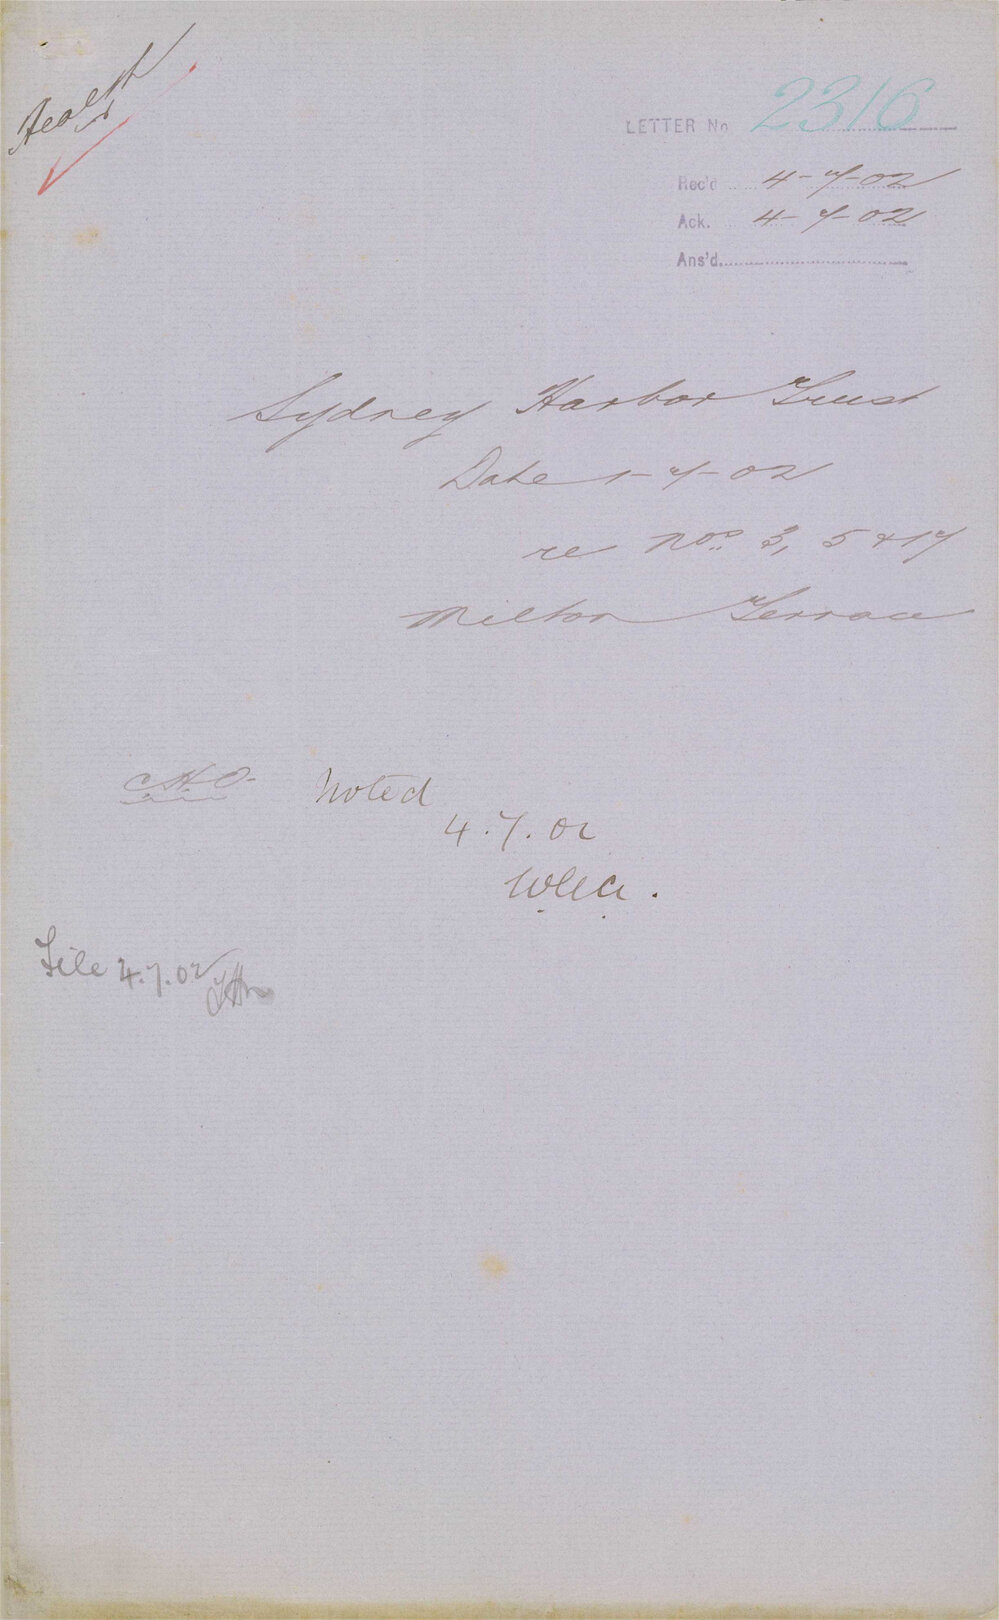 Health
LETTER No 2316
Rec'd 4-7-02
Ack. 4-7-02
Ans'd
Sydney Harbor Trust
Date 1-7-02
re Nos. 3, 5 & 17
Milton Terrace
C.H.O.
Noted
4.7.02
File 4.7.02